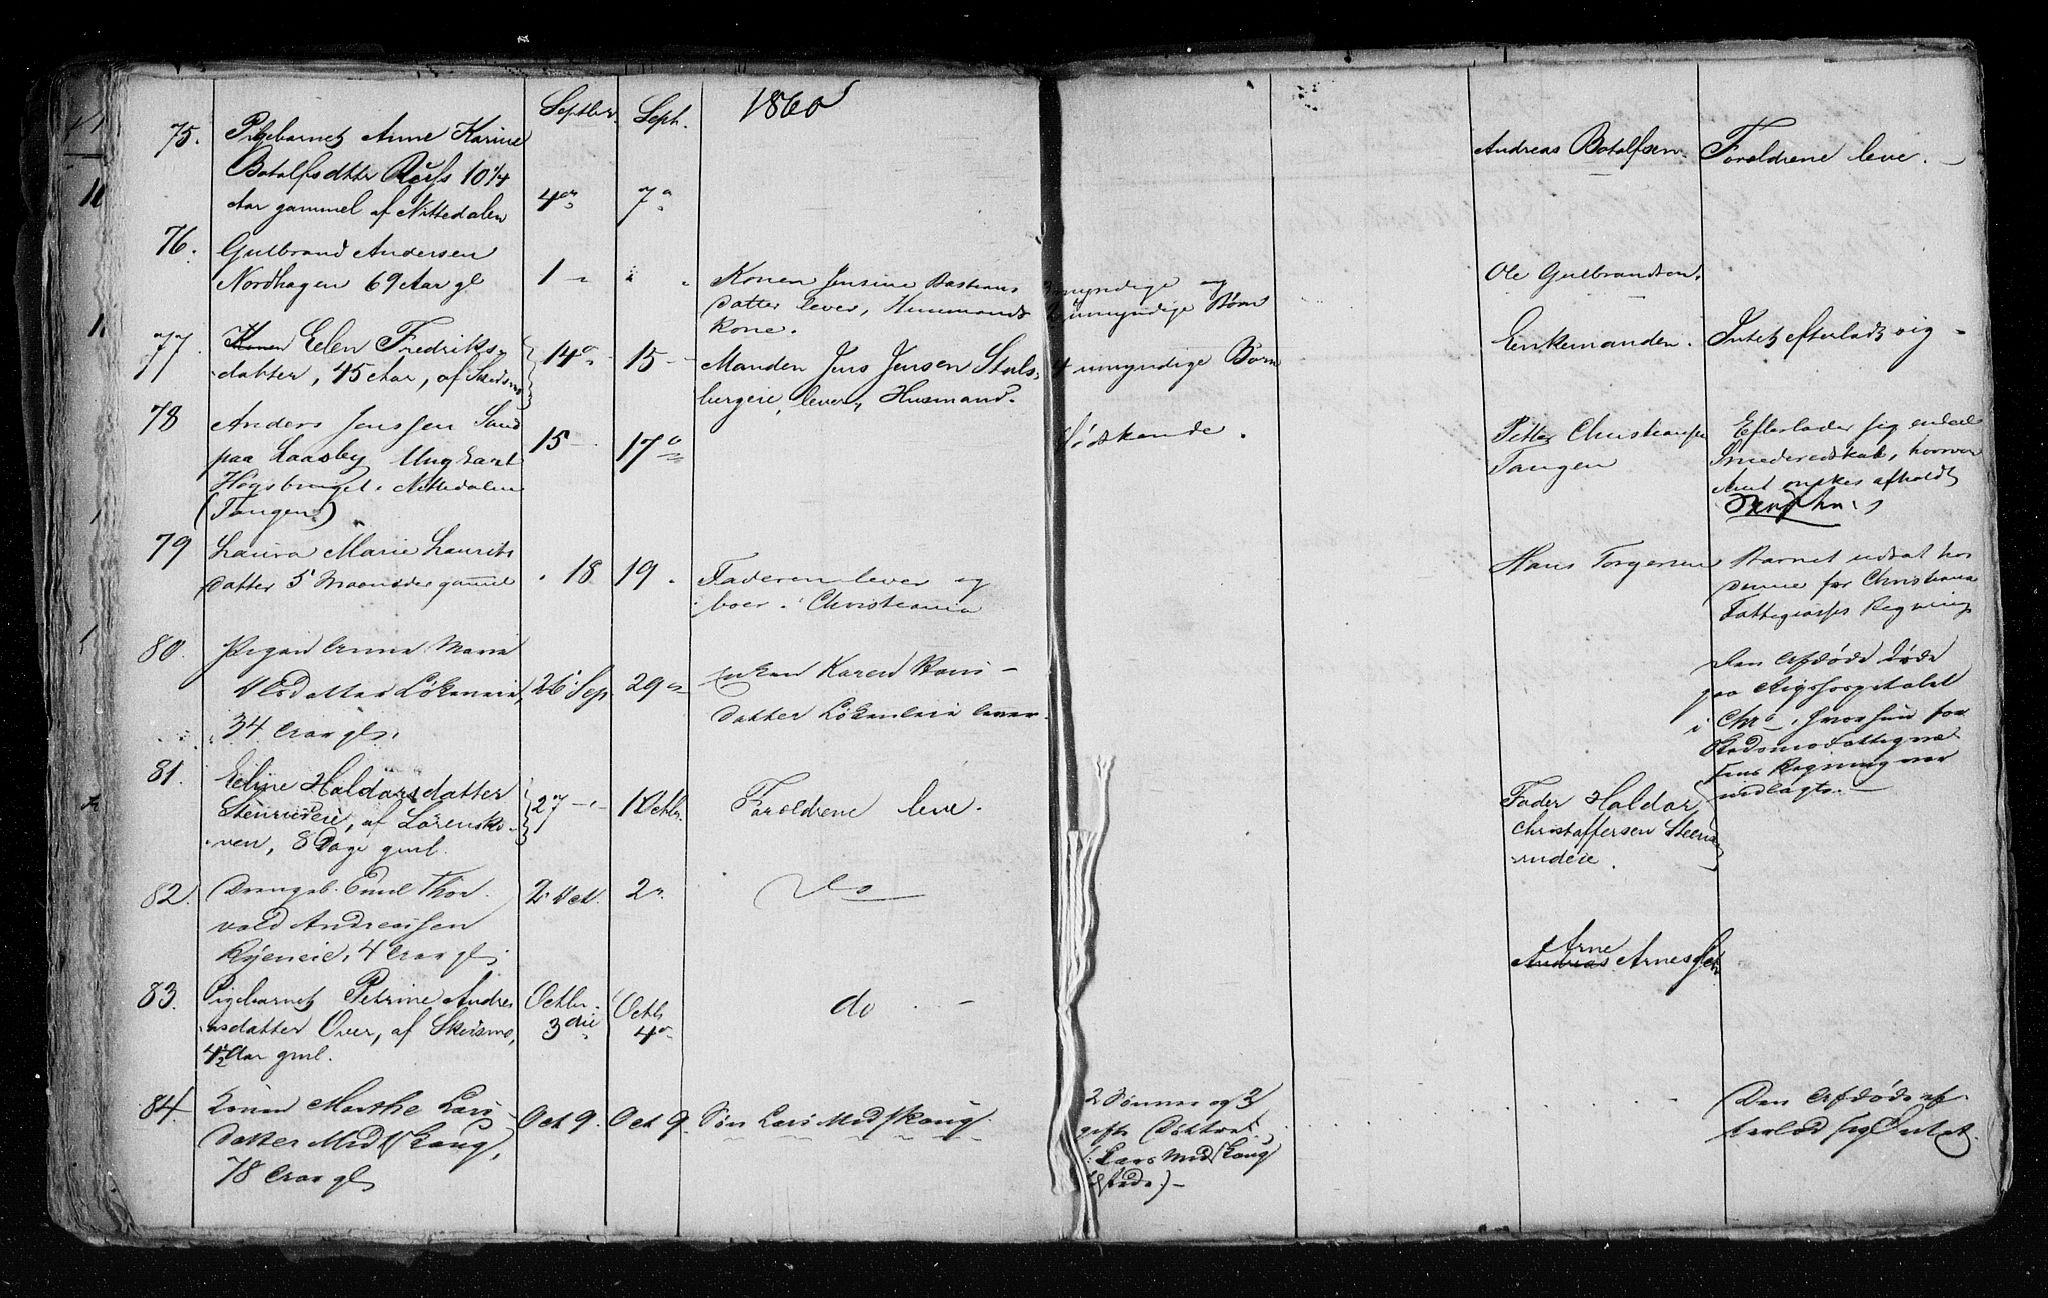 1860
Septbr.
Septb.
75.
Pigebarnet Anne Karine
Botolfsdtter 10 1/4
Aar gammel af Nittedalen
4de
7de
Andreas Botolfsen
Foreldrene leve. —
76.
Gulbrand Andersen
Nordhagen 69 Aar gl
1 "
Konen Jensine Bastians
datter lever, Huusmands
kone.
myndige og
umyndige Børn
Ole Gulbrandsen.
77.
Konen Elen Fredriks-
datter, 45 Aar, af Skedsmo
14de
15 —
Manden Jens Jensen Stuls-
bergeie, lever, Husmand.
4 umyndige Børn
Enkemanden.
Intet efterladt sig —
78
Anders Jenssen Sand
paa Laasby Ungkarl
Nittedalen
(Tangen)
15 —
17de
Sødskende.
Petter Christiansen
Tangen
Efterlader sig endeel
Smederedskab, hvorover
Auct ønskes afholdt
79
Laura Marie Laurits
datter 5 Maaneder gammel
" 18
19 "
Faderen lever og
boer i Christiania
Hans Torgersen
Barnet udsat hos
denne for Christiania
Fattigcasses Regning
80.
Pigen Anna Maria
Olsdatter Løkeneie,
34 Aar gl.
26 Sep
29de
Enken Karen Hans-
datter Løkeneie lever.
Den Afdøde døde
paa Rigshospitalet
i Chra, hvor hun for
Skedsmo Fattigvæ-
sens Regning var
indlagt. —
81.
Eline Haldorsdatter
Stenrudeie, af Lørensko-
ven, 8 Dage gml.
27 —
1 Octbr.
Foreldrene leve.
Fader Haldor
Christoffersen Steen-
rudeie.
82.
Drengeb. Emil Thor-
vald Andreassen
Ryeneie, 4 Aar gl
2 Oct.
2 "
Do
83.
Pigebarnet Petrine Andre
asdatter Over, af Skedsmo,
4 1/2 Aar gml.
Octbr.
3die
Octb
4de
do —
Arne
Andreas Arnesen
84.
Konen Marthe Lars-
datter Midtskoug,
78 Aar gl
Oct 9.
Oct 9.
Søn Lars Midtskoug.
2 Sønner og 3
gifte Døttre
(: Lars Midtskoug
Den Afdøde ef-
terlod sig Intet.